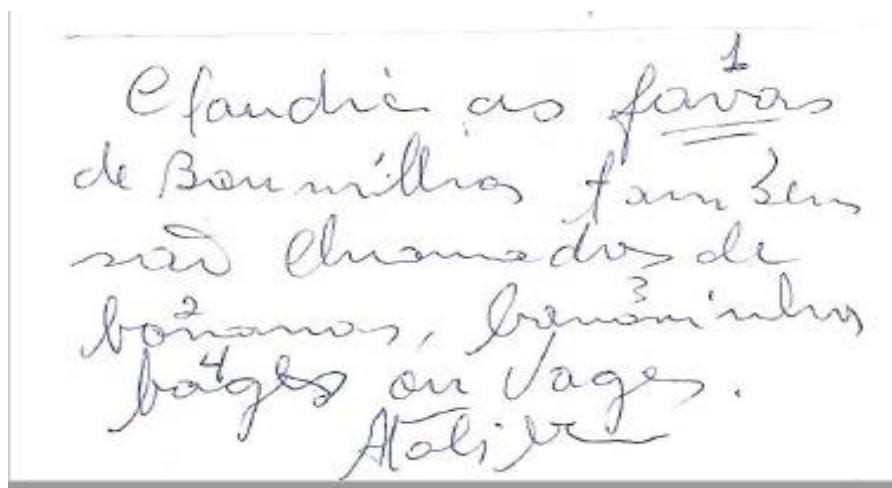 Claudia as favas 1
de Baunilhas também
são chamadas de
bananas 2, bananinhas 3
bages 4 ou Vages.